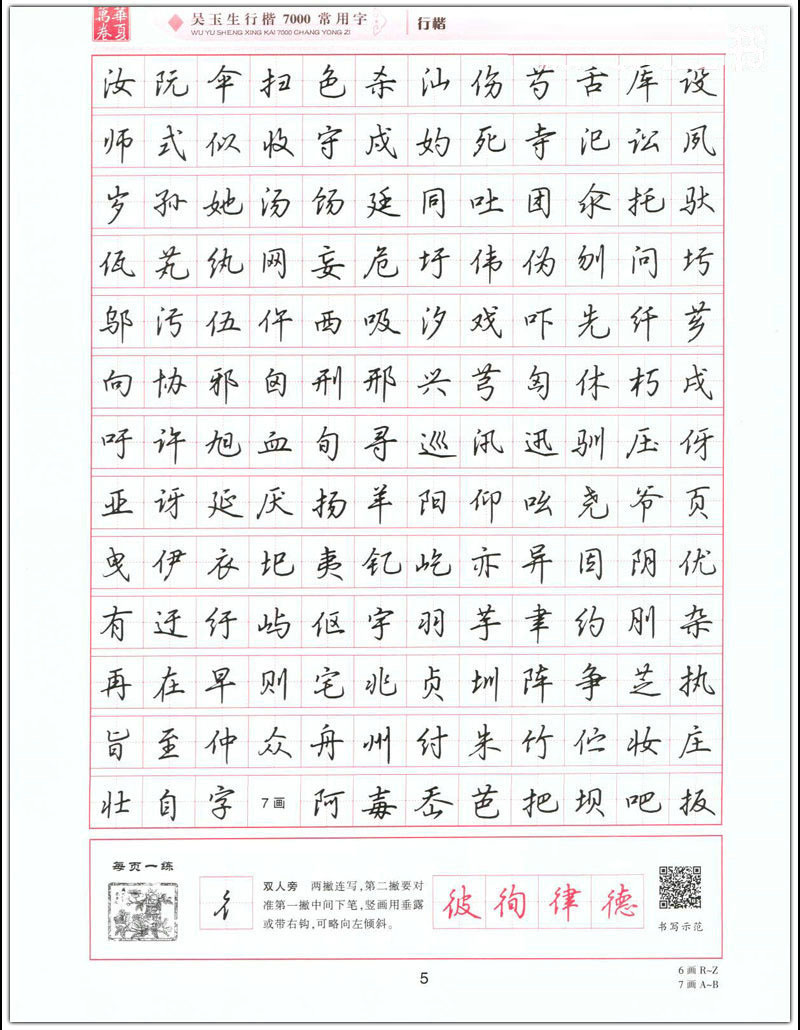 華夏萬卷
吴玉生行楷 7000 常用字
WU YU SHENG XING KAI 7000 CHANG YONG ZI
行楷
汝阮伞扫色杀汕伤芍舌厍设
师式似收守戍妁死寺汜讼夙
岁孙她汤饧廷同吐团氽托驮
佤芄纨网妄危圩伟伪刎问圬
邬污伍仵西吸汐戏吓先纤芗
向协邪囟刑邢兴芎匈休朽戌
吁许旭血旬寻巡汛迅驯压伢
亚讶延厌扬羊阳仰吆尧爷页
曳伊衣圯夷钇屹亦异因阴优
有迂纡屿伛宇羽芋聿约刖杂
再在早则宅兆贞圳阵争芝执
旨至仲众舟州纣朱竹伫妆庄
壮自字7画阿毐岙芭把坝吧扳
每页一练
彳
双人旁 两撇连写,第二撇要对
准第一撇中间下笔,竖画用垂露
或带右钩,可略向左倾斜。
彼徇律德
书写示范
5
6画 R~Z
7画 A~B